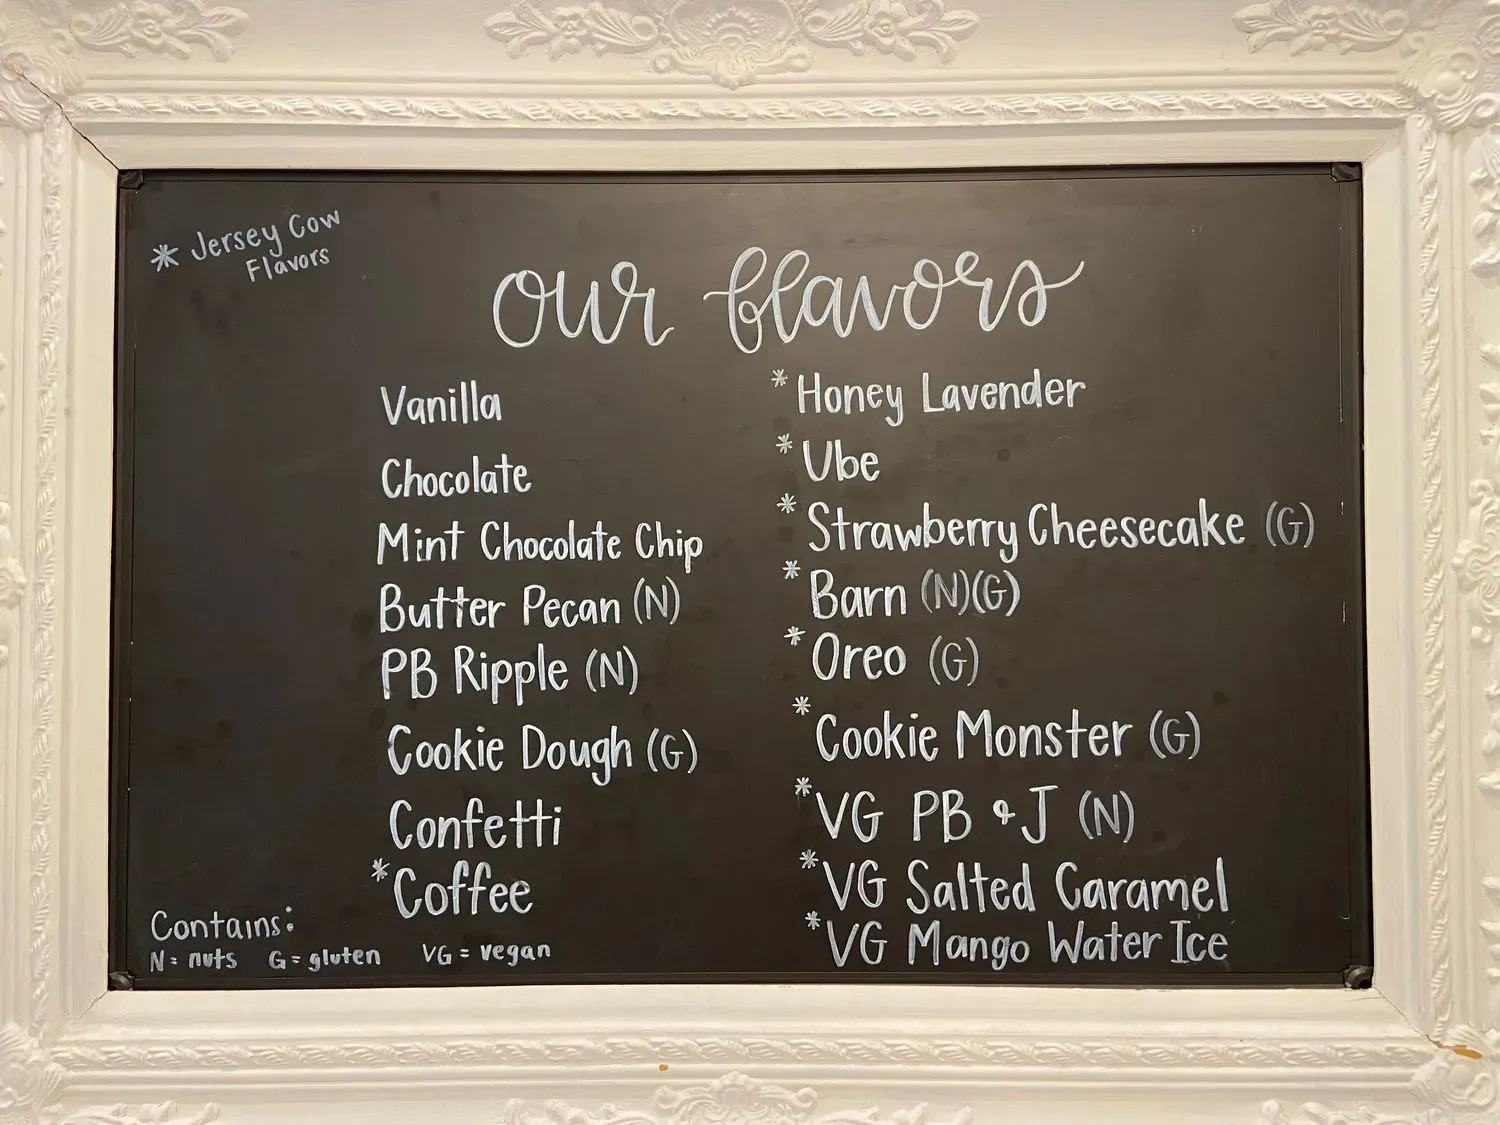 * Jersey Cow
Flavors
our flavors
Vanilla
Chocolate
Mint Chocolate Chip
Butter Pecan (N)
PB Ripple (N)
Cookie Dough (G)
Confetti
*Coffee
* Honey Lavender
* Ube
* Strawberry Cheesecake (G)
* Barn (N)(G)
* Oreo (G)
* Cookie Monster (G)
* VG PB & J (N)
* VG Salted Caramel
* VG Mango Water Ice
Contains:
N = nuts G = gluten VG = vegan